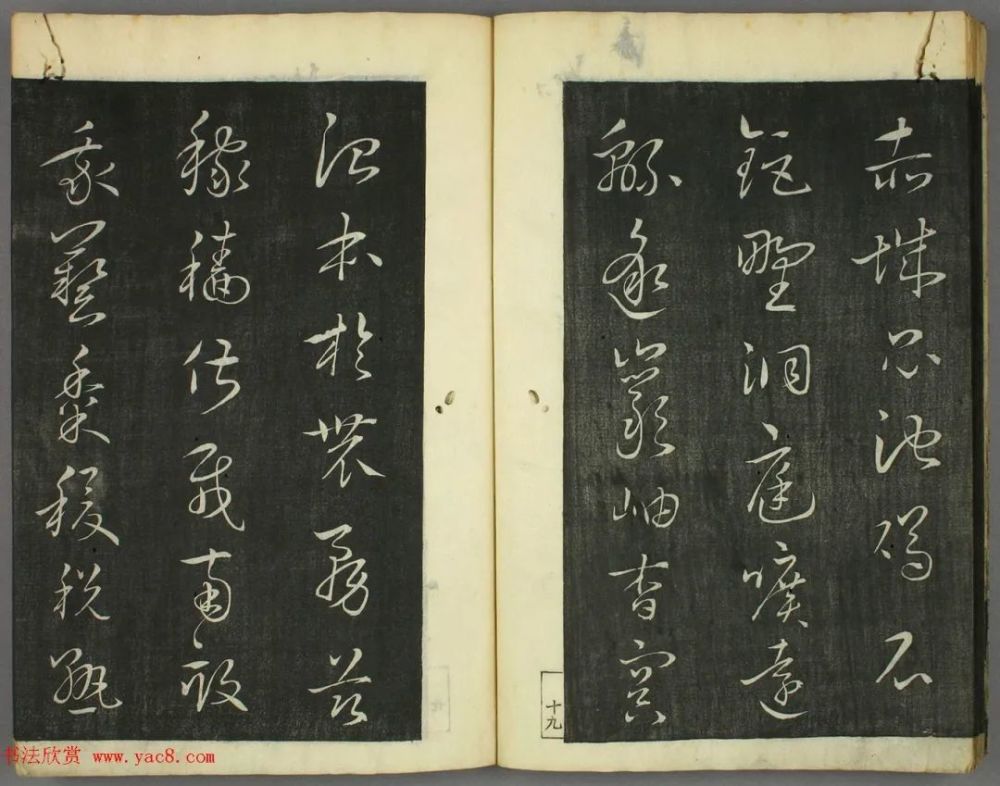 赤城昆池碣石
鉅野洞庭曠遠
綿邈巖岫杳冥
治本於農務茲
稼穡俶載南畝
我藝黍稷稅熟
十九
书法欣赏 www.yac8.com